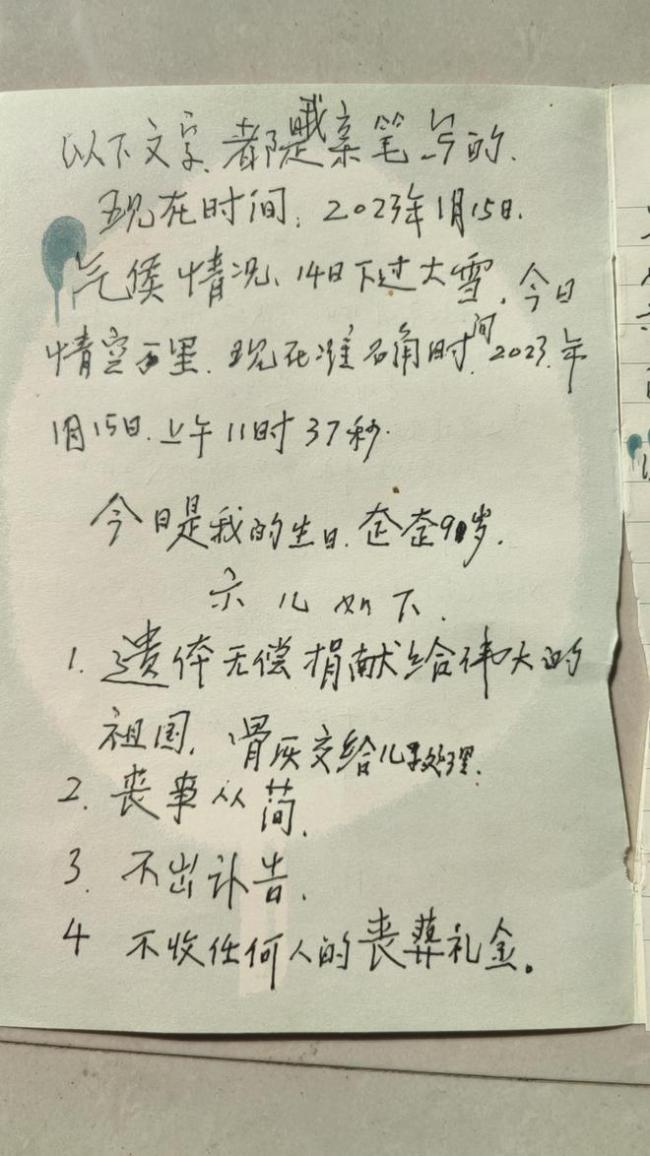 以下文字、都是我亲笔写的.
现在时间: 2023年1月15日.
气候情况、14日下过大雪.今日
情空万里.现在准确时间2023.年
1月15日.上午11时37秒.
今日是我的生日.奁奁90岁.
示儿如下.
1.遗体无偿捐献给伟大的
祖国,骨灰交给儿子处理.
2.丧事从简.
3.不出讣告.
4 不收任何人的丧葬礼金。